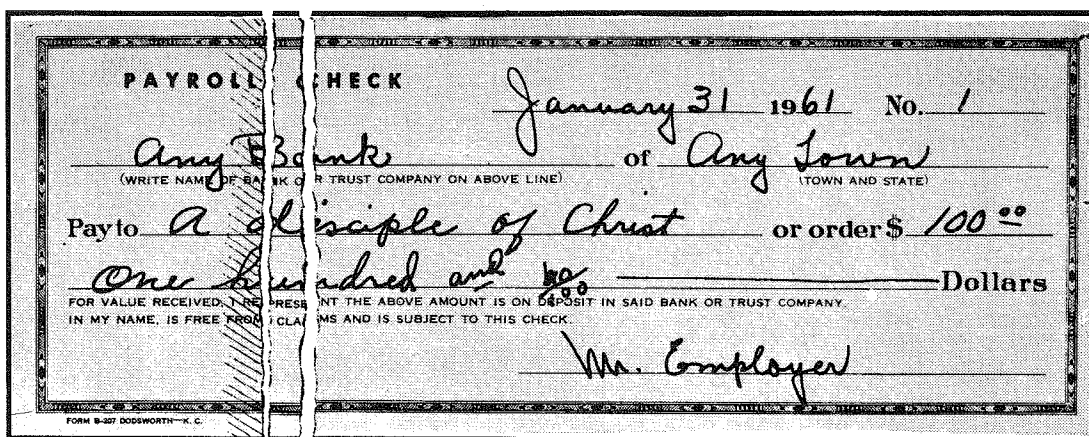 PAYROLL CHECK
January 31 1961 No. 1
Any Bank of Any Town
(WRITE NAME OF BANK OR TRUST COMPANY ON ABOVE LINE) (TOWN AND STATE)
Pay to A disciple of Christ or order $ 100 00
One hundred and no/100 Dollars
FOR VALUE RECEIVED, I REPRESENT THE ABOVE AMOUNT IS ON DEPOSIT IN SAID BANK OR TRUST COMPANY
IN MY NAME, IS FREE FROM CLAIMS AND IS SUBJECT TO THIS CHECK.
Mr. Employer
FORM B-207 DODSWORTH—K. C.